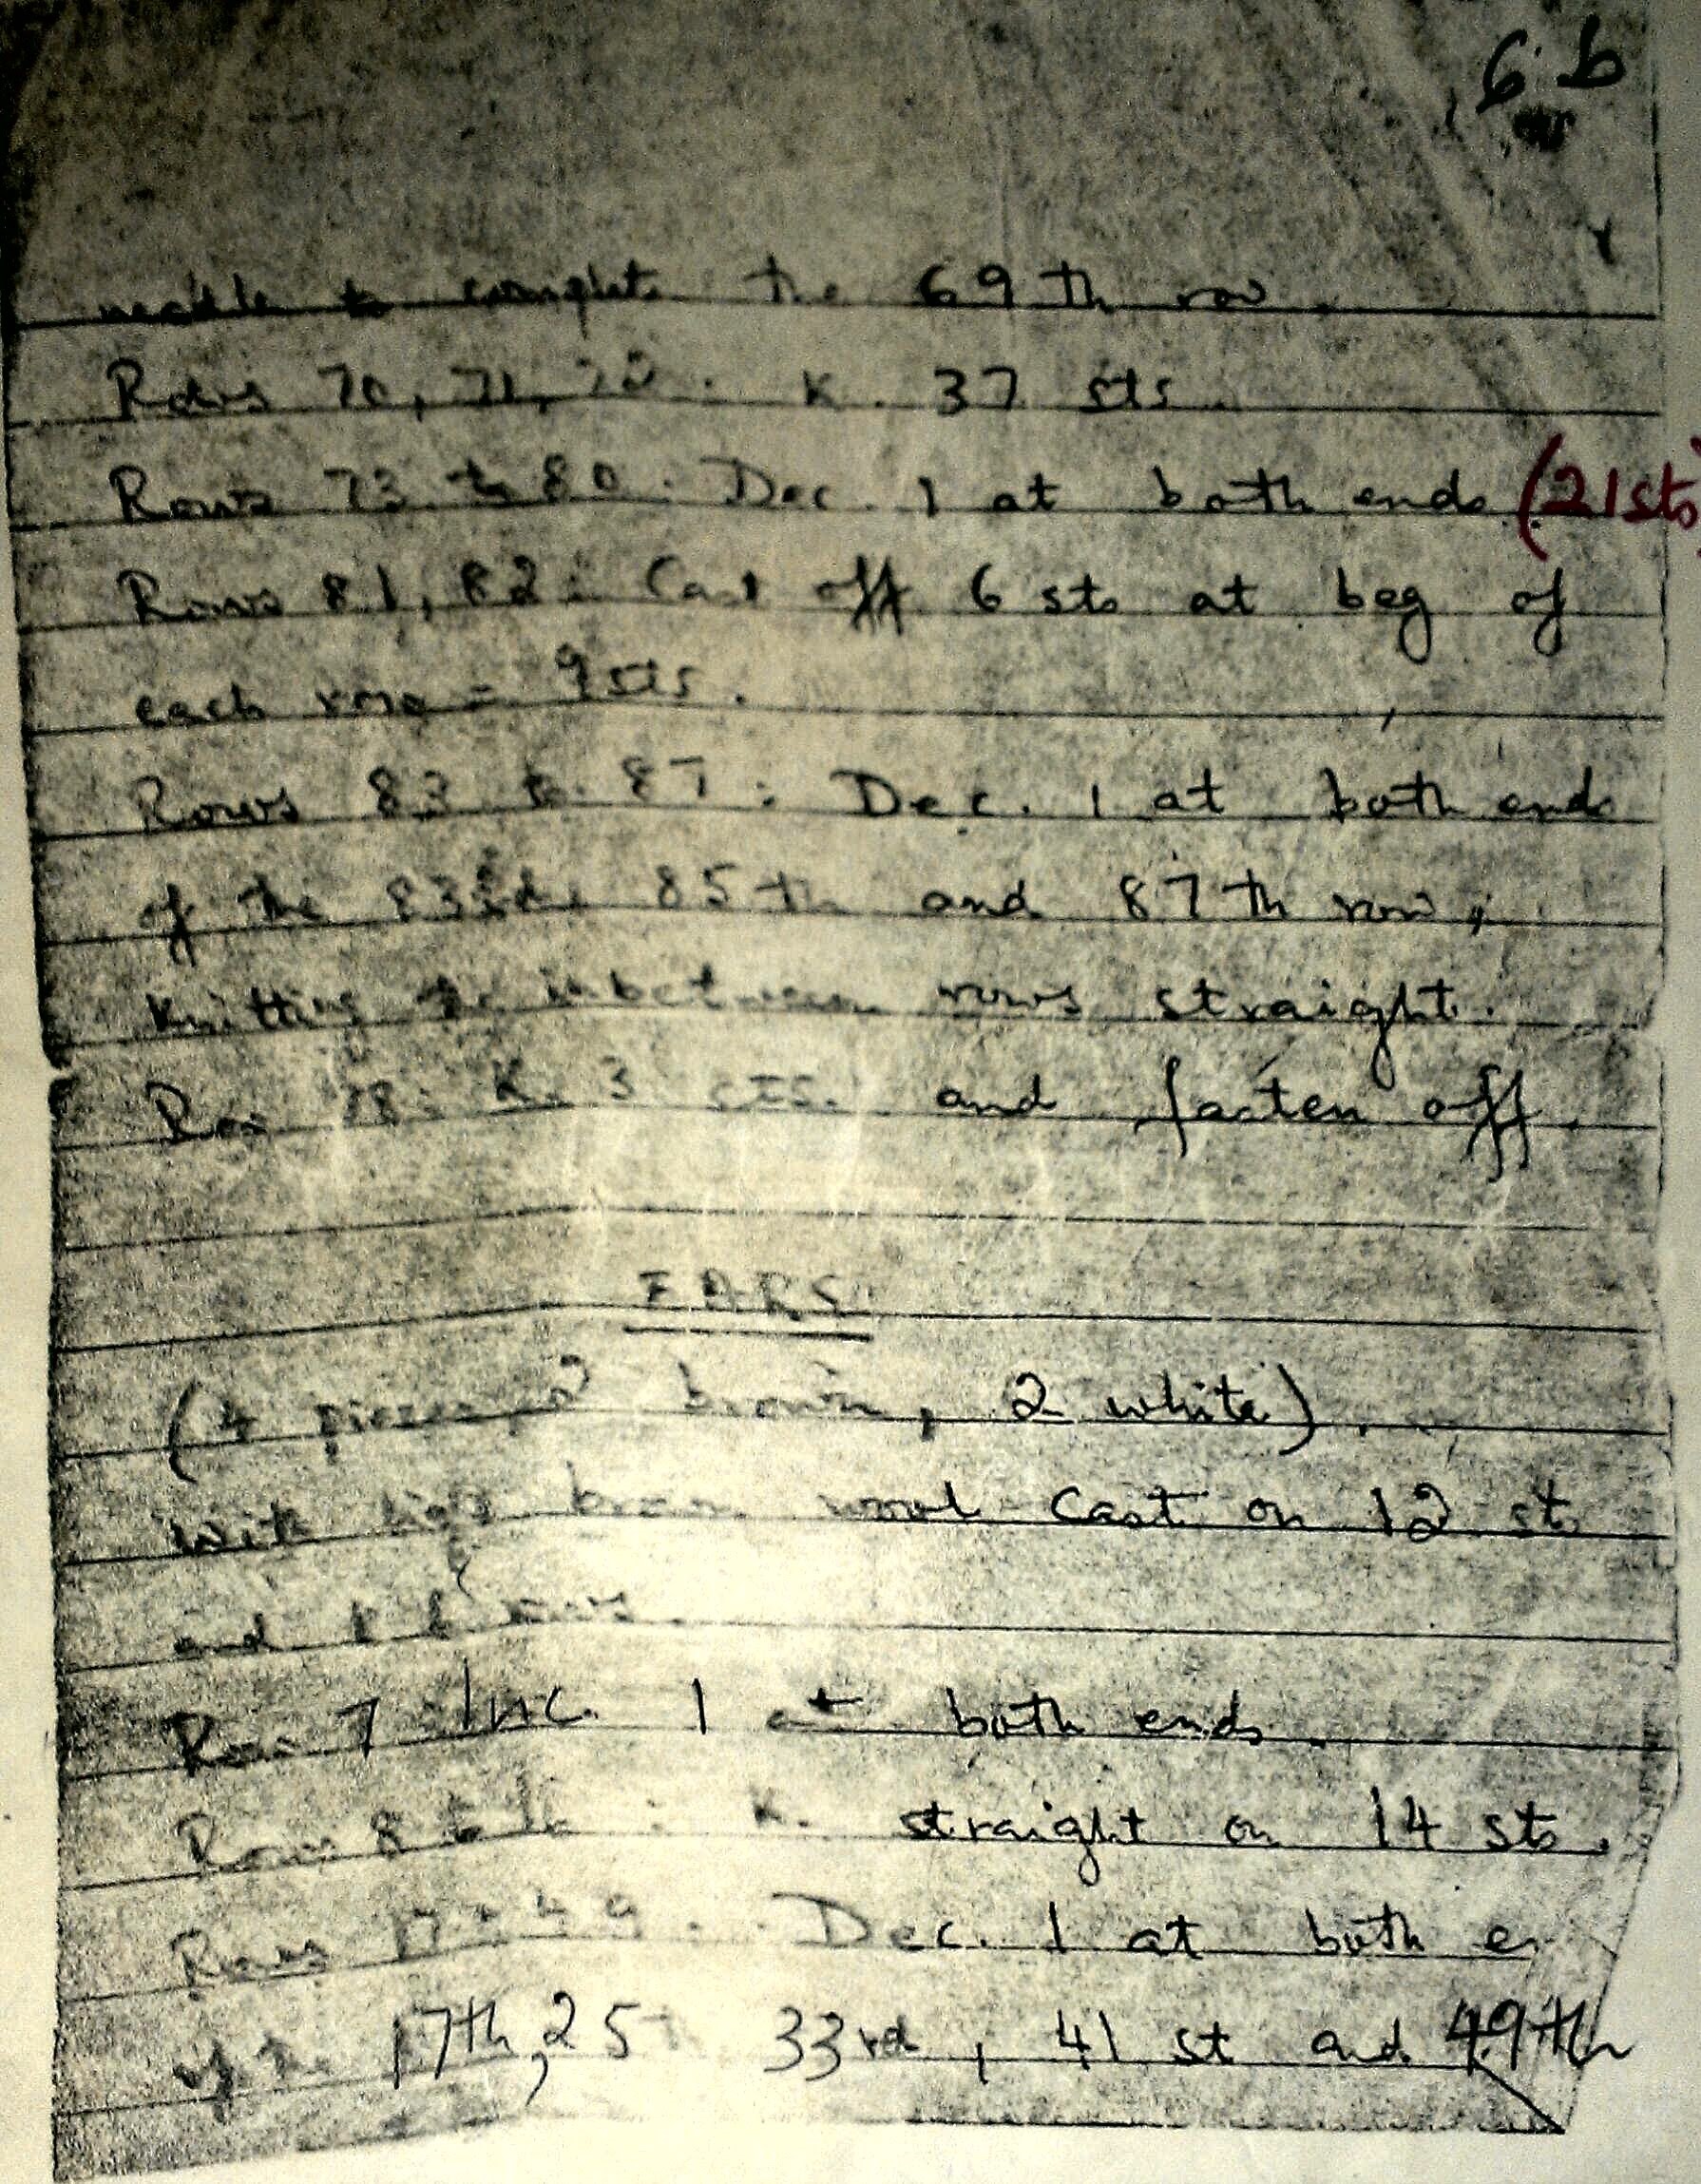 6 b
needle to complete the 69 th row.
Rows 70, 71, 72 : K. 37 sts.
Rows 73 to 80 : Dec. 1 at both ends (21 sts)
Rows 81, 82 : Cast off 6 sts at beg of
each row = 9 sts.
Rows 83 to 87 : Dec. 1 at both ends
of the 83rd, 85 th and 87 th row,
knitting the inbetween rows straight.
Row 88 : K. 3 sts. and fasten off.
EARS
(4 pieces, 2 brown, 2 white).
With brown wool cast on 12 st
and K 6 rows.
Row 7 Inc. 1 at both ends.
Rows 8 to 16 : K. straight on 14 sts.
Rows 17 to 49 : Dec. 1 at both
of the 17th, 25 33 rd, 41 st and 49th